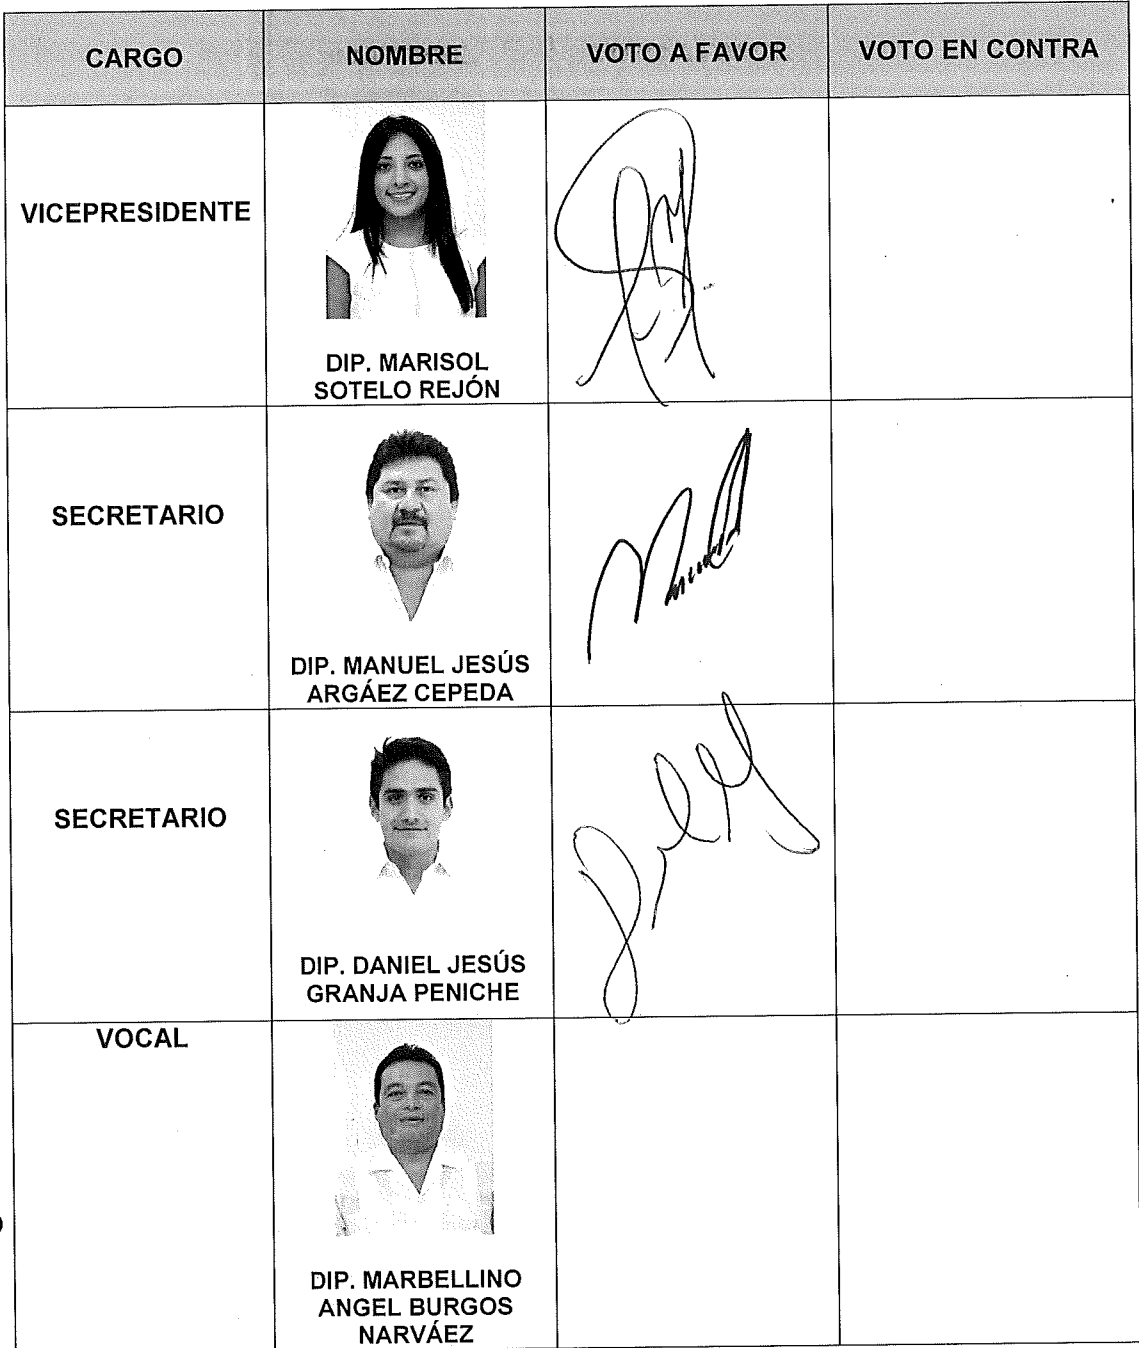 CARGO NOMBRE VOTO A FAVOR VOTO EN CONTRA
VICEPRESIDENTE
DIP. MARISOL
SOTELO REJÓN
SECRETARIO
DIP. MANUEL JESÚS
ARGÁEZ CEPEDA
SECRETARIO
DIP. DANIEL JESÚS
GRANJA PENICHE
VOCAL
DIP. MARBELLINO
ANGEL BURGOS
NARVÁEZ